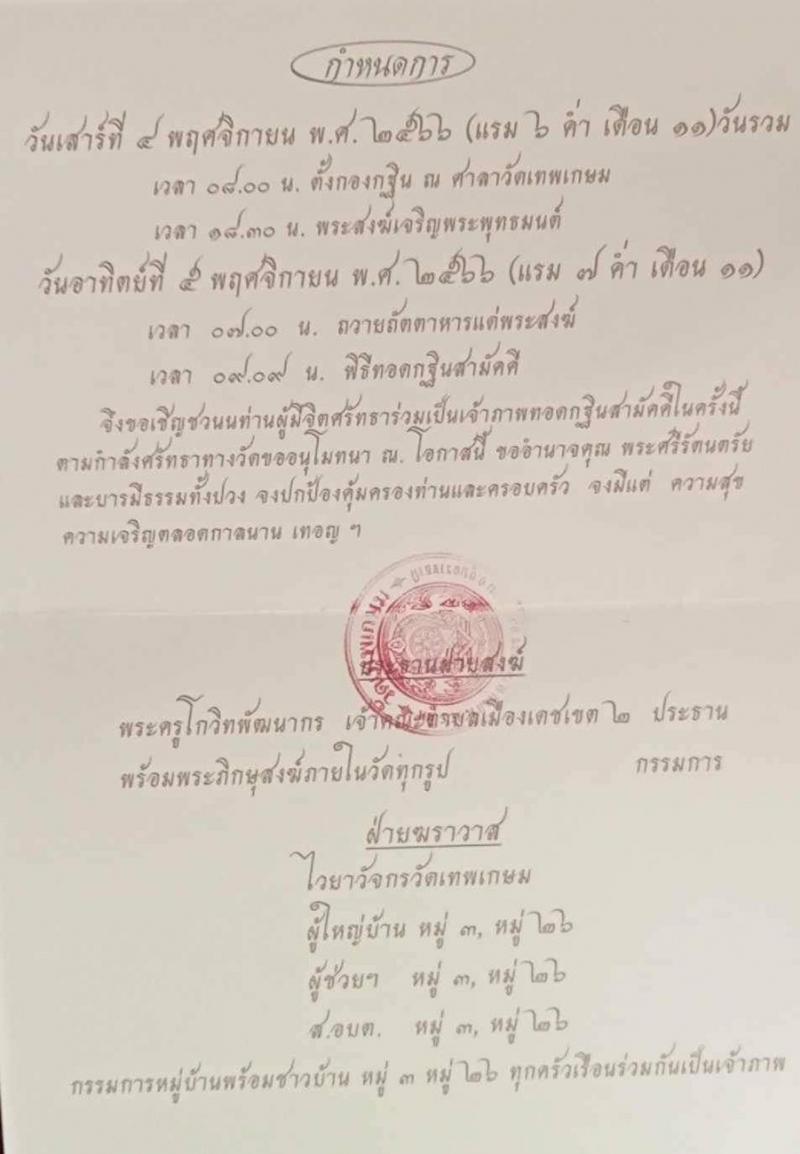 กำหนดการ
วันเสาร์ที่ ๔ พฤศจิกายน พ.ศ. ๒๕๖๖ (แรม ๖ ค่ำ เดือน ๑๑) วันรวม
เวลา ๐๘.๐๐ น. ตั้งกองกฐิน ณ ศาลาวัดเทพเกษม
เวลา ๑๘.๓๐ น. พระสงฆ์เจริญพระพุทธมนต์
วันอาทิตย์ที่ ๕ พฤศจิกายน พ.ศ. ๒๕๖๖ (แรม ๗ ค่ำ เดือน ๑๑)
เวลา ๐๗.๐๐ น. ถวายภัตตาหารแด่พระสงฆ์
เวลา ๐๙.๐๙ น. พิธีทอดกฐินสามัคคี
จึงขอเชิญชวนนท่านผู้มีจิตศรัทธาร่วมเป็นเจ้าภาพทอดกฐินสามัคคีในครั้งนี้
ตามกำลังศรัทธาทางวัดขออนุโมทนา ณ. โอกาสนี้ ขออำนาจคุณ พระศรีรัตนตรัย
และบารมีธรรมทั้งปวง จงปกป้องคุ้มครองท่านและครอบครัว จงมีแต่ ความสุข
ความเจริญตลอดกาลนาน เทอญ ฯ
ประธานฝ่ายสงฆ์
พระครูโกวิทพัฒนากร เจ้าคณะตำบลเมืองเดชเขต ๒ ประธาน
พร้อมพระภิกษุสงฆ์ภายในวัดทุกรูป กรรมการ
ฝ่ายฆราวาส
ไวยาวัจกรวัดเทพเกษม
ผู้ใหญ่บ้าน หมู่ ๓, หมู่ ๒๖
ผู้ช่วยฯ หมู่ ๓, หมู่ ๒๖
ส.อบต. หมู่ ๓, หมู่ ๒๖
กรรมการหมู่บ้านพร้อมชาวบ้าน หมู่ ๓ หมู่ ๒๖ ทุกครัวเรือนร่วมกันเป็นเจ้าภาพ